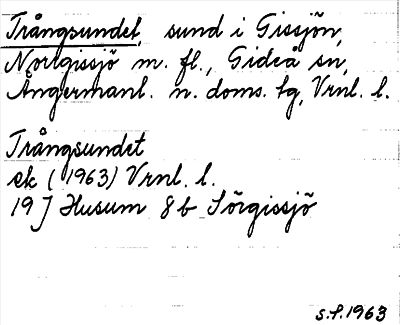 Trångsundet, sund i Gissjön,
Norrgissjö m. fl., Gideå sn,
Ångermanl. n. doms. tg, Vrnl. l.
Trångsundet
ek (1963) Vrnl. l.
19 J Husum 8 b Sörgissjö
S.f. 1963